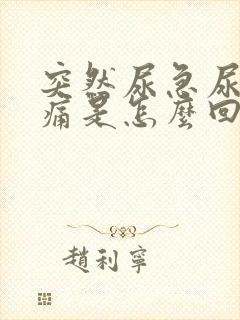 突然尿急尿
痛是怎麼回
趙利寧